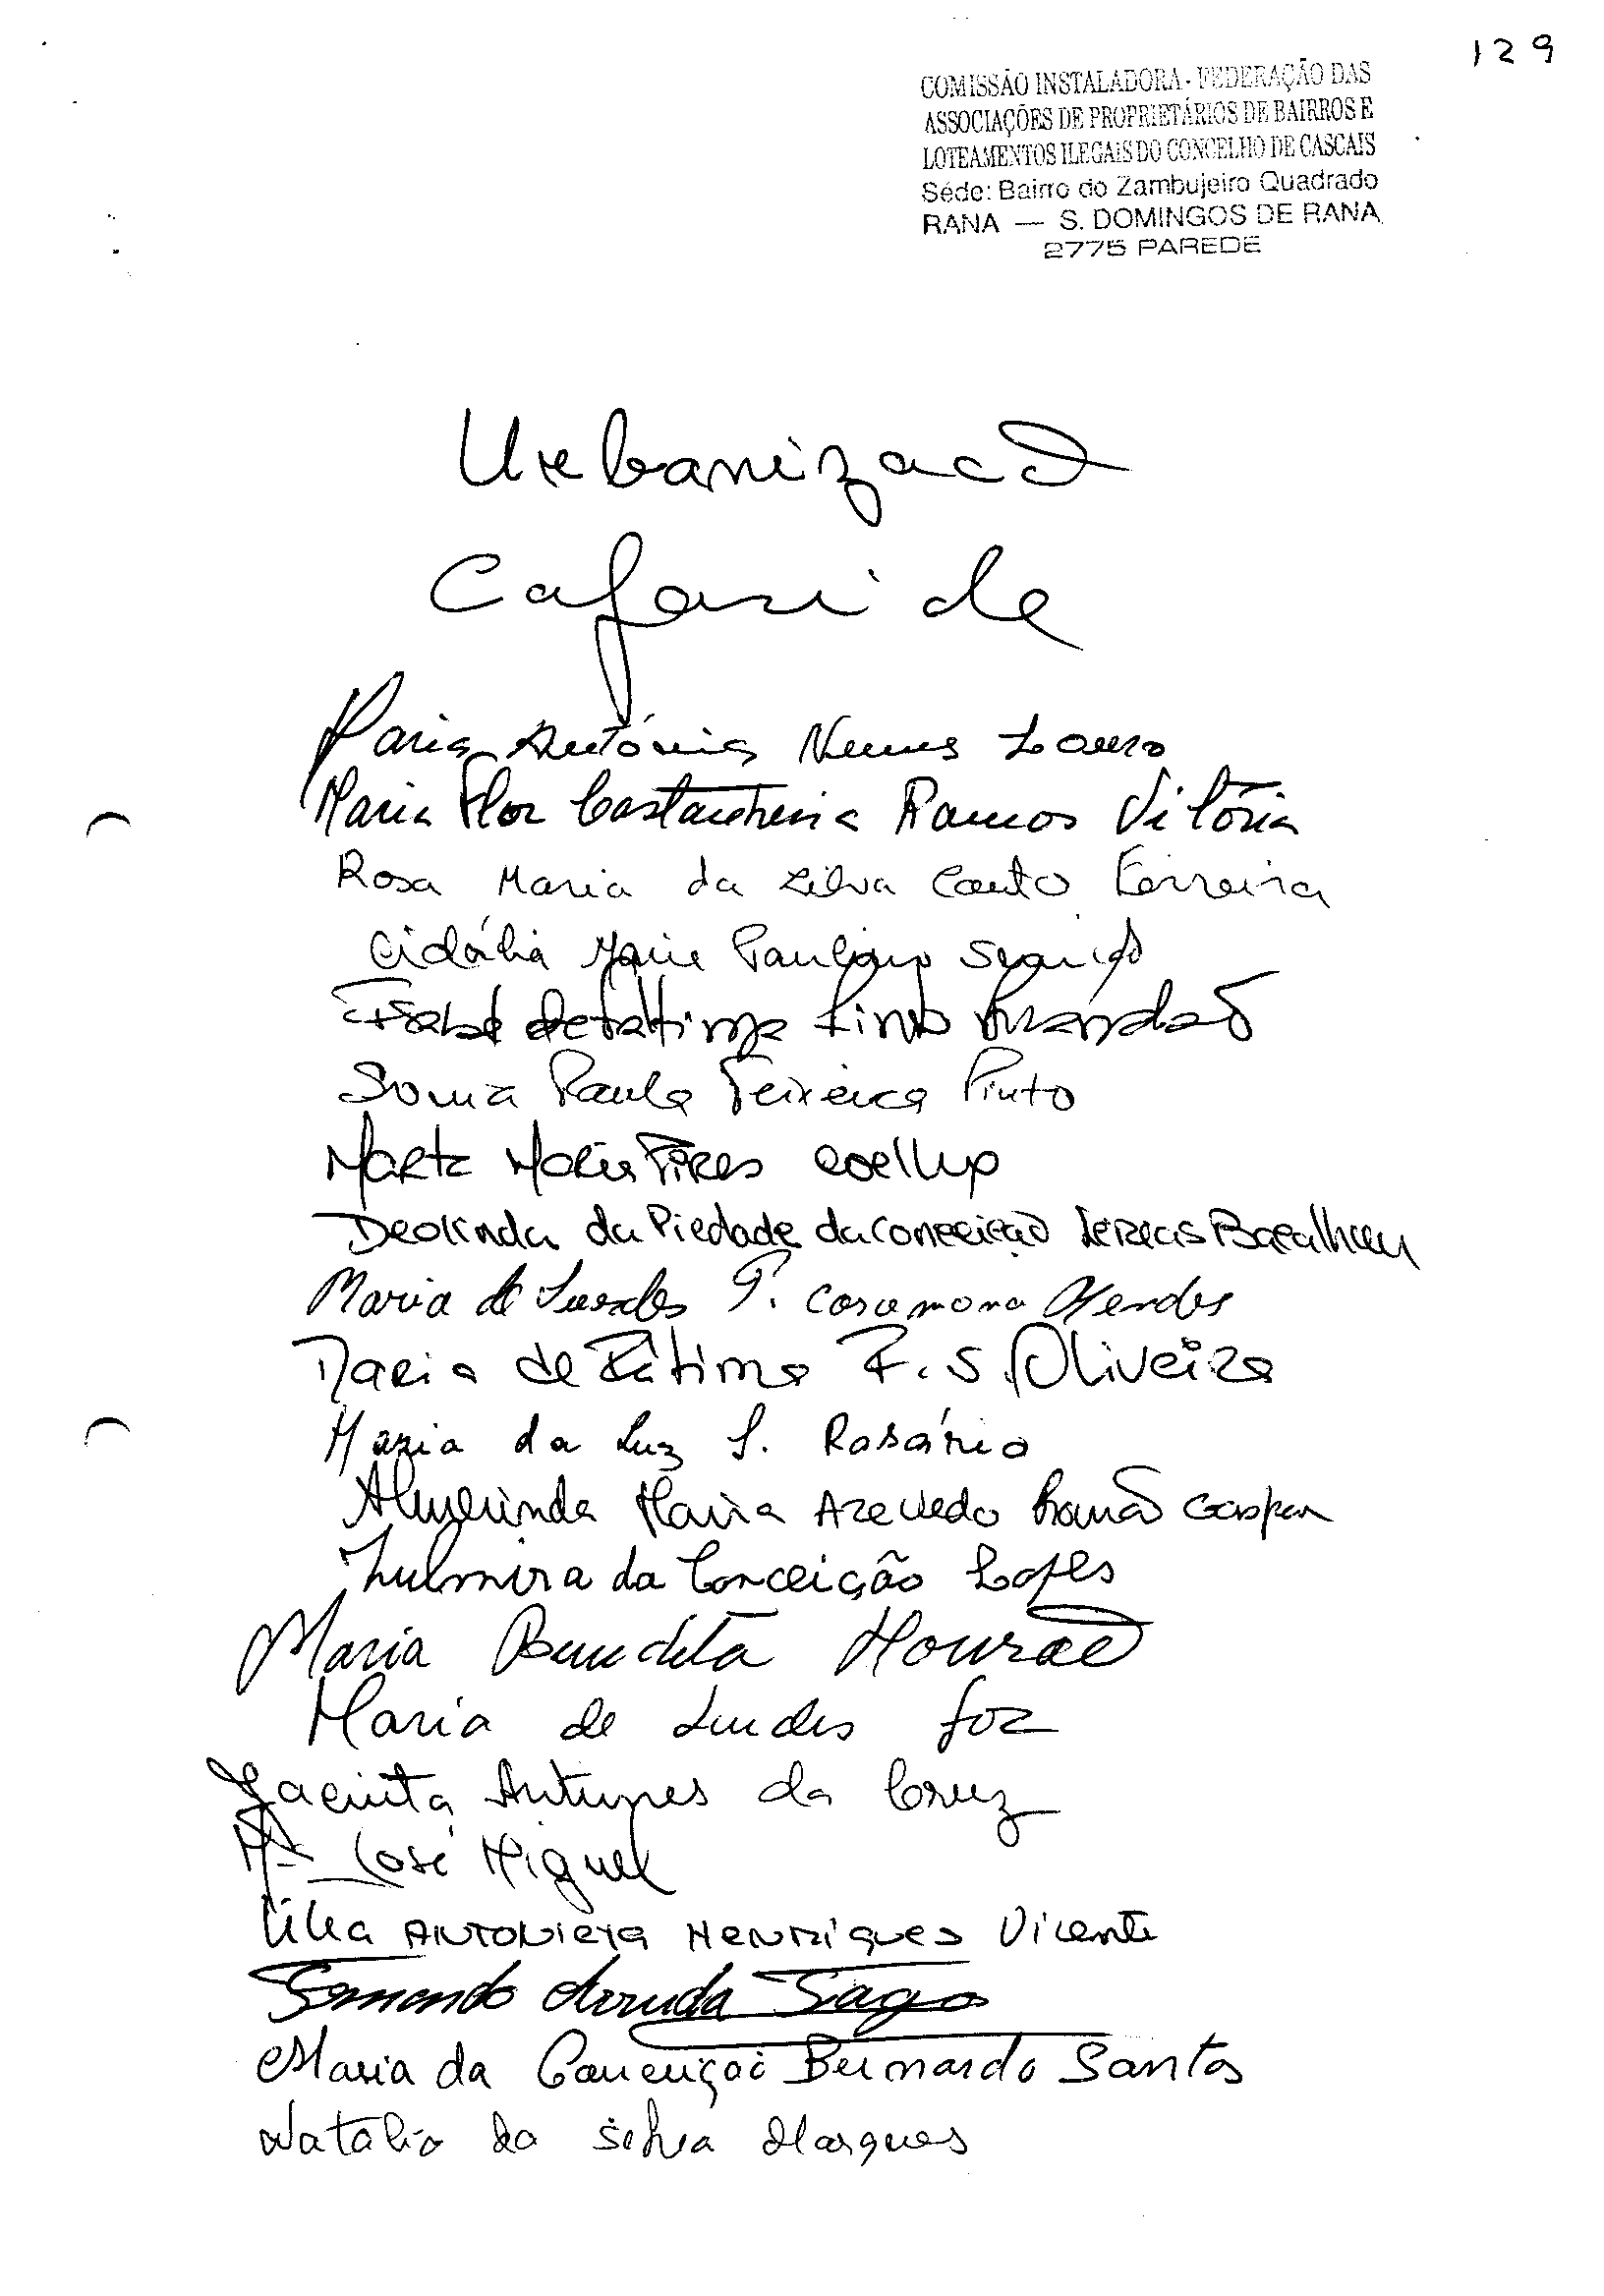 129
COMISSÃO INSTALADORA - FEDERAÇÃO DAS
ASSOCIAÇÕES DE PROPRIETÁRIOS DE BAIRROS E
LOTEAMENTOS ILEGAIS DO CONCELHO DE CASCAIS
Séde: Bairro do Zambujeiro Quadrado
RANA — S. DOMINGOS DE RANA
2775 PAREDE
Urbanizacã
Cafari de
Maria Antónia Nunes Louro
Maria Flor Castanheira Ramos Vitória
Rosa Maria da Silva Couto Ferreira
Cidália Maria Paulino
Isabel de Fatima Pinto Brandão
Sonia Paula Teixeira Pinto
Marta Maria Pires Coelho
Deolinda da Piedade da Conceição Bacalhau
Maria de Lurdes P. Caramona Mendes
Maria de Fátima F. S. Oliveira
Maria da Luz S. Rosário
Almerinda Maria Azevedo Romão Gaspar
Zulmira da Conceição Lopes
Maria Benedita Mourão
Maria de Lurdes Foz
Jacinta Antunes da Cruz
Mª José Miguel
Lília ANTONIETA HENRIQUES Vicente
Fernando Arruda Tiago
Maria da Conceiçoi Bernardo Santos
Natália da Silva Marques